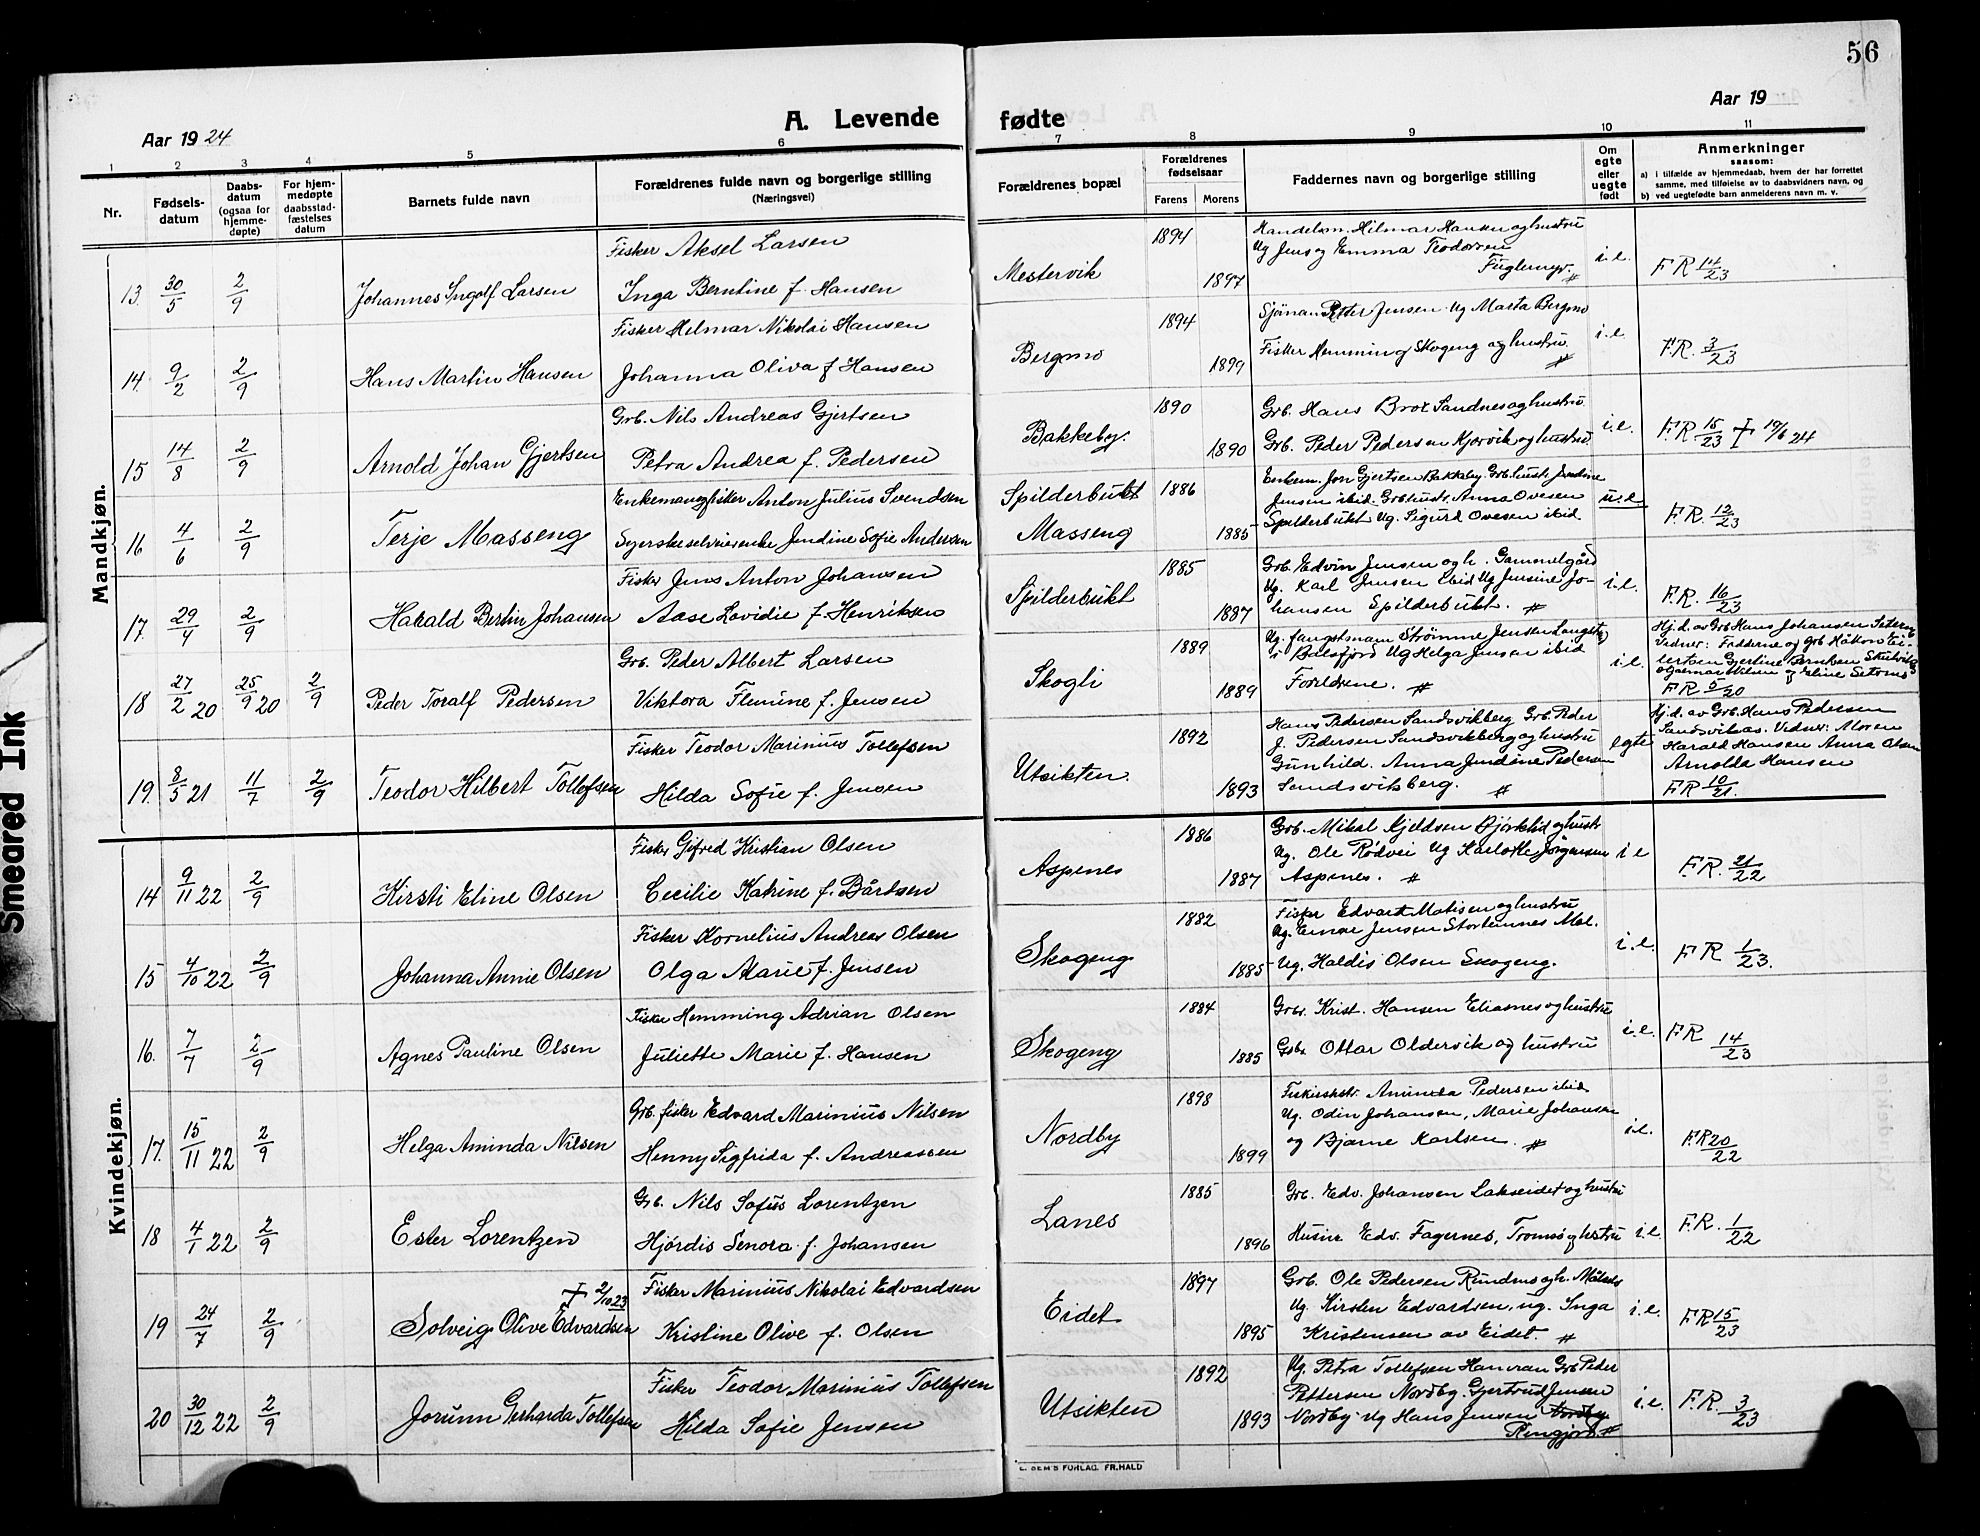 56
A. Levende fødte
Aar 1924
Aar 19
1 2 3 4 5 6 7 8 9 10 11
Nr.
Fødsels-
datum
Daabs-
datum
(ogsaa for
hjemme-
døpte)
For hjem-
medøpte
daabsstad-
fæstelses
datum
Barnets fulde navn
Forældrenes fulde navn og borgerlige stilling
(Næringsvei)
Forældrenes bopæl
Forældrenes
fødselsaar
Farens Morens
Faddernes navn og borgerlige stilling
Om
egte
eller
uegte
født
Anmerkninger
saasom:
a) i tilfælde av hjemmedaab, hvem der har forrettet
samme, med tilføielse av to daabsvidners navn, og
b) ved uegtefødte barn anmelderens navn m. v.
Mandkjøn.
13. 30/5 2/9 Johannes Ingolf Larsen
Fisker Aksel Larsen
Inga Berntine f. Hansen
Mestervik 1894 1897
Handelsm. Hilmar Hansen og hustru
Ug Jens og Emma Teodorsen
Fuglemyr. #
i.e. F R 14/23
14. 9/2 2/9 Hans Martin Hansen
Fisker Helmar Nikolai Hansen
Johanna Oliva f Hansen
Bergmo 1894 1899
Petter Jensen Ug Marta Bergmo
Fisker Hemming Skogeng og hustru. #
i.e. F.R. 3/23
15 14/8 2/9 Arnold Johan Gjertsen
Grb. Nils Andreas Gjertsen
Petra Andrea f. Pedersen
Bakkeby. 1890 1890
Grb. Hans Brox Sandnes og hustru
Grb. Peder Pedersen Kjorvik og hustru.
i.e. F.R 15/23 † 19/6 24
16 4/6 2/9 Terje Masseng
Enkemand og fisker Anton Julius Svendsen
Jendine Sofie Andersen
Spilderbukt
Masseng 1886 1885
Enkem. Jon Gjertsen Bakkeby. Grb. hustr. Jendine
Jensen ibid. Grb hustr. Anna Ovesen
Spilderbukt Ug. Sigurd Ovesen ibid
u.e. F.R. 12/23
17. 29/4 2/9 Harald Bertin Johansen
Fisker Jens Anton Johansen
Aase Lovidie f. Henriksen
Spilderbukt 1885 1887
Grb. Edvin Jensen og h. Gammelgård
Ug. Karl Jensen ibid Ug Jensine Jo-
hansen Spilderbukt. #
i.e. F.R. 16/23
18 27/2 20 25/9 20 2/9 Peder Toralf Pedersen
Grb. Peder Albert Larsen
Viktora Flemine f. Jensen
Skogli 1889 1889
Ug. fangstmann Strømme Jensen
i Balsfjord Ug Helga Jensen ibid
Foreldrene. #
i.e. Hj.d. av Grb Hans Johansen
Vedner: Fadderne og Grb Håkon
F.R 5/20
19. 8/5 21 11/7 2/9 Teodor Hilbert Tollefsen
Fisker Teodor Marinius Tollefsen
Hilda Sofie f. Jensen
Utsikten. 1892 1893
Hans Pedersen Sandsvikberg Grb. Peder
J. Pedersen Sandsvikberg og hustru
Gunhild. Anna Jendine Pedersen
Sandsviksberg. #
egte Hj.d. av Grb. Hans Pedersen
Sandsvikaas. Vedner: Moren
Harald Hansen Anna Olsen
Arnolda Hansen
F.R 10/21.
Kvindekjøn.
14 9/11 22 2/9 Kirsti Eline Olsen
Fisker Gifred Kristian Olsen
Cecilie Katrine f. Bårdsen
Aspenes 1886 1887
Grb. Mikal Kjeldsen Bjørklid og hustr
Ug. Ole Rødvei Ug Karlotte Jørgensen
Aspenes. #
i e F.R. 21/22
15 4/10 22 2/9 Johanna Annie Olsen
Fisker Kornelius Andreas Olsen
Olga Marie f. Jensen
Skogeng 1882 1885
Fisker Edvardt Matisen og hustru
Ug. Einar Jensen Storteinnes Mal.
Ug. Haldis Olsen Skogeng.
i.e. F R 1/23.
16. 7/7 2/9 Agnes Pauline Olsen
Fisker Hemming Adrian Olsen
Juliette Marie f. Hansen
Skogeng 1884 1885
Grbr. Krist. Hansen Eliasnes og hustru
Gsbr Ottar Oldervik og hustru
i.e. F R 14/23
17. 15/11 22 2/9 Helga Aminda Nilsen
Grb. fisker Edvard Marinius Nilsen
Henny Sigfrida f. Andreassen
Nordby 1898 1899
Aminda Pedersen ibid
Ug. Odin Johansen, Marie Johansen
og Bjarne Karlsen. #
i.e. F.R 20/22
18 4/1 22 2/9 Ester Lorentzen
Grb. Nils Sofus Lorentzen
Hjördis Senora f. Johansen
Lanes 1885 1896
Grb. Edv. Johansen Lakseidet og hustru
Edv. Fagernes, Tromsø
i.e. F.R. 1/22
19 24/7 2/9 Solveig Olive Edvardsen † 2/10 23
Fisker Marinius Nikolai Edvardsen
Kristine Olive f. Olsen
Eidet 1897 1895
Grb. Ole Pedersen Rundmo og h. Målselv
Ug. Kirsten Edvardsen, ug. Inga
Kristensen av Eidet. #
i.e. F R 15/23
20 30/12 22 2/9 Jorunn Gerharda Tollefsen
Fisker Teodor Marinius Tollefsen
Hilda Sofie Jensen
Utsikten 1892 1893
Ug. Petra Tollefsen Grb Peder
Pettersen Nordby. Gjertrud Jensen
Nordby. Ug Hans Jensen Nordby
#
i.e. F.R. 3/23
E. SEM'S FORLAG. FR.HALD
Smeared Ink